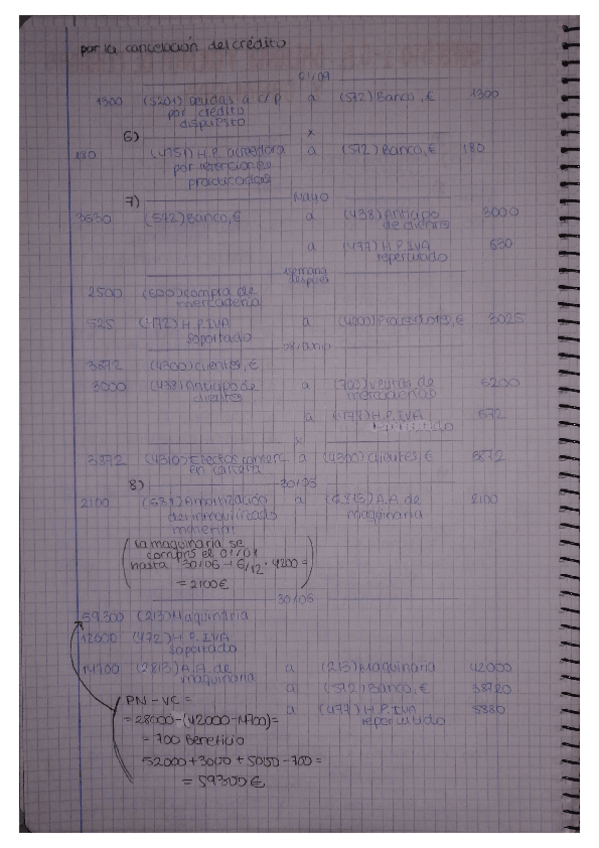 por la cancelación del crédito
01/09
1300 (5201) Deudas a c/p a (572) Banco, € 1300
por crédito
dispuesto
6) x
180 (4751) H.P. acreedora a (572) Banco, € 180
por retenciones
practicadas
7) Mayo
3630 (572) Banco, € a (438) Anticipo 3000
de clientes
a (477) H.P. IVA 630
repercutido
semana
después
2500 (600) compra de
mercadería
525 (472) H.P. IVA a (4000) Proveedores, € 3025
soportado
3872 (4300) clientes, €
3000 (438) Anticipo de a (700) Ventas de 6200
clientes mercaderías
a (477) H.P. IVA 672
x
3872 (4310) Efectos comerc. a (4300) clientes, € 3872
en cartera
8) 30/06
2100 (681) Amortización a (2813) A.A. de 2100
del inmovilizado maquinaria
material
(la maquinaria se
compró el 01/01
hasta 30/06 → 6/12 · 4200 =
= 2100 €)
30/06
59300 (213) Maquinaria
12600 (472) H.P. IVA
soportado
14700 (2813) A.A. de a (213) Maquinaria 42000
maquinaria
a (572) Banco, € 38720
a (477) H.P. IVA 5880
repercutido
PN - VC =
= 28000 - (42000 - 14700) =
= 700 Beneficio
52000 + 3000 + 5000 - 700 =
= 59300 €